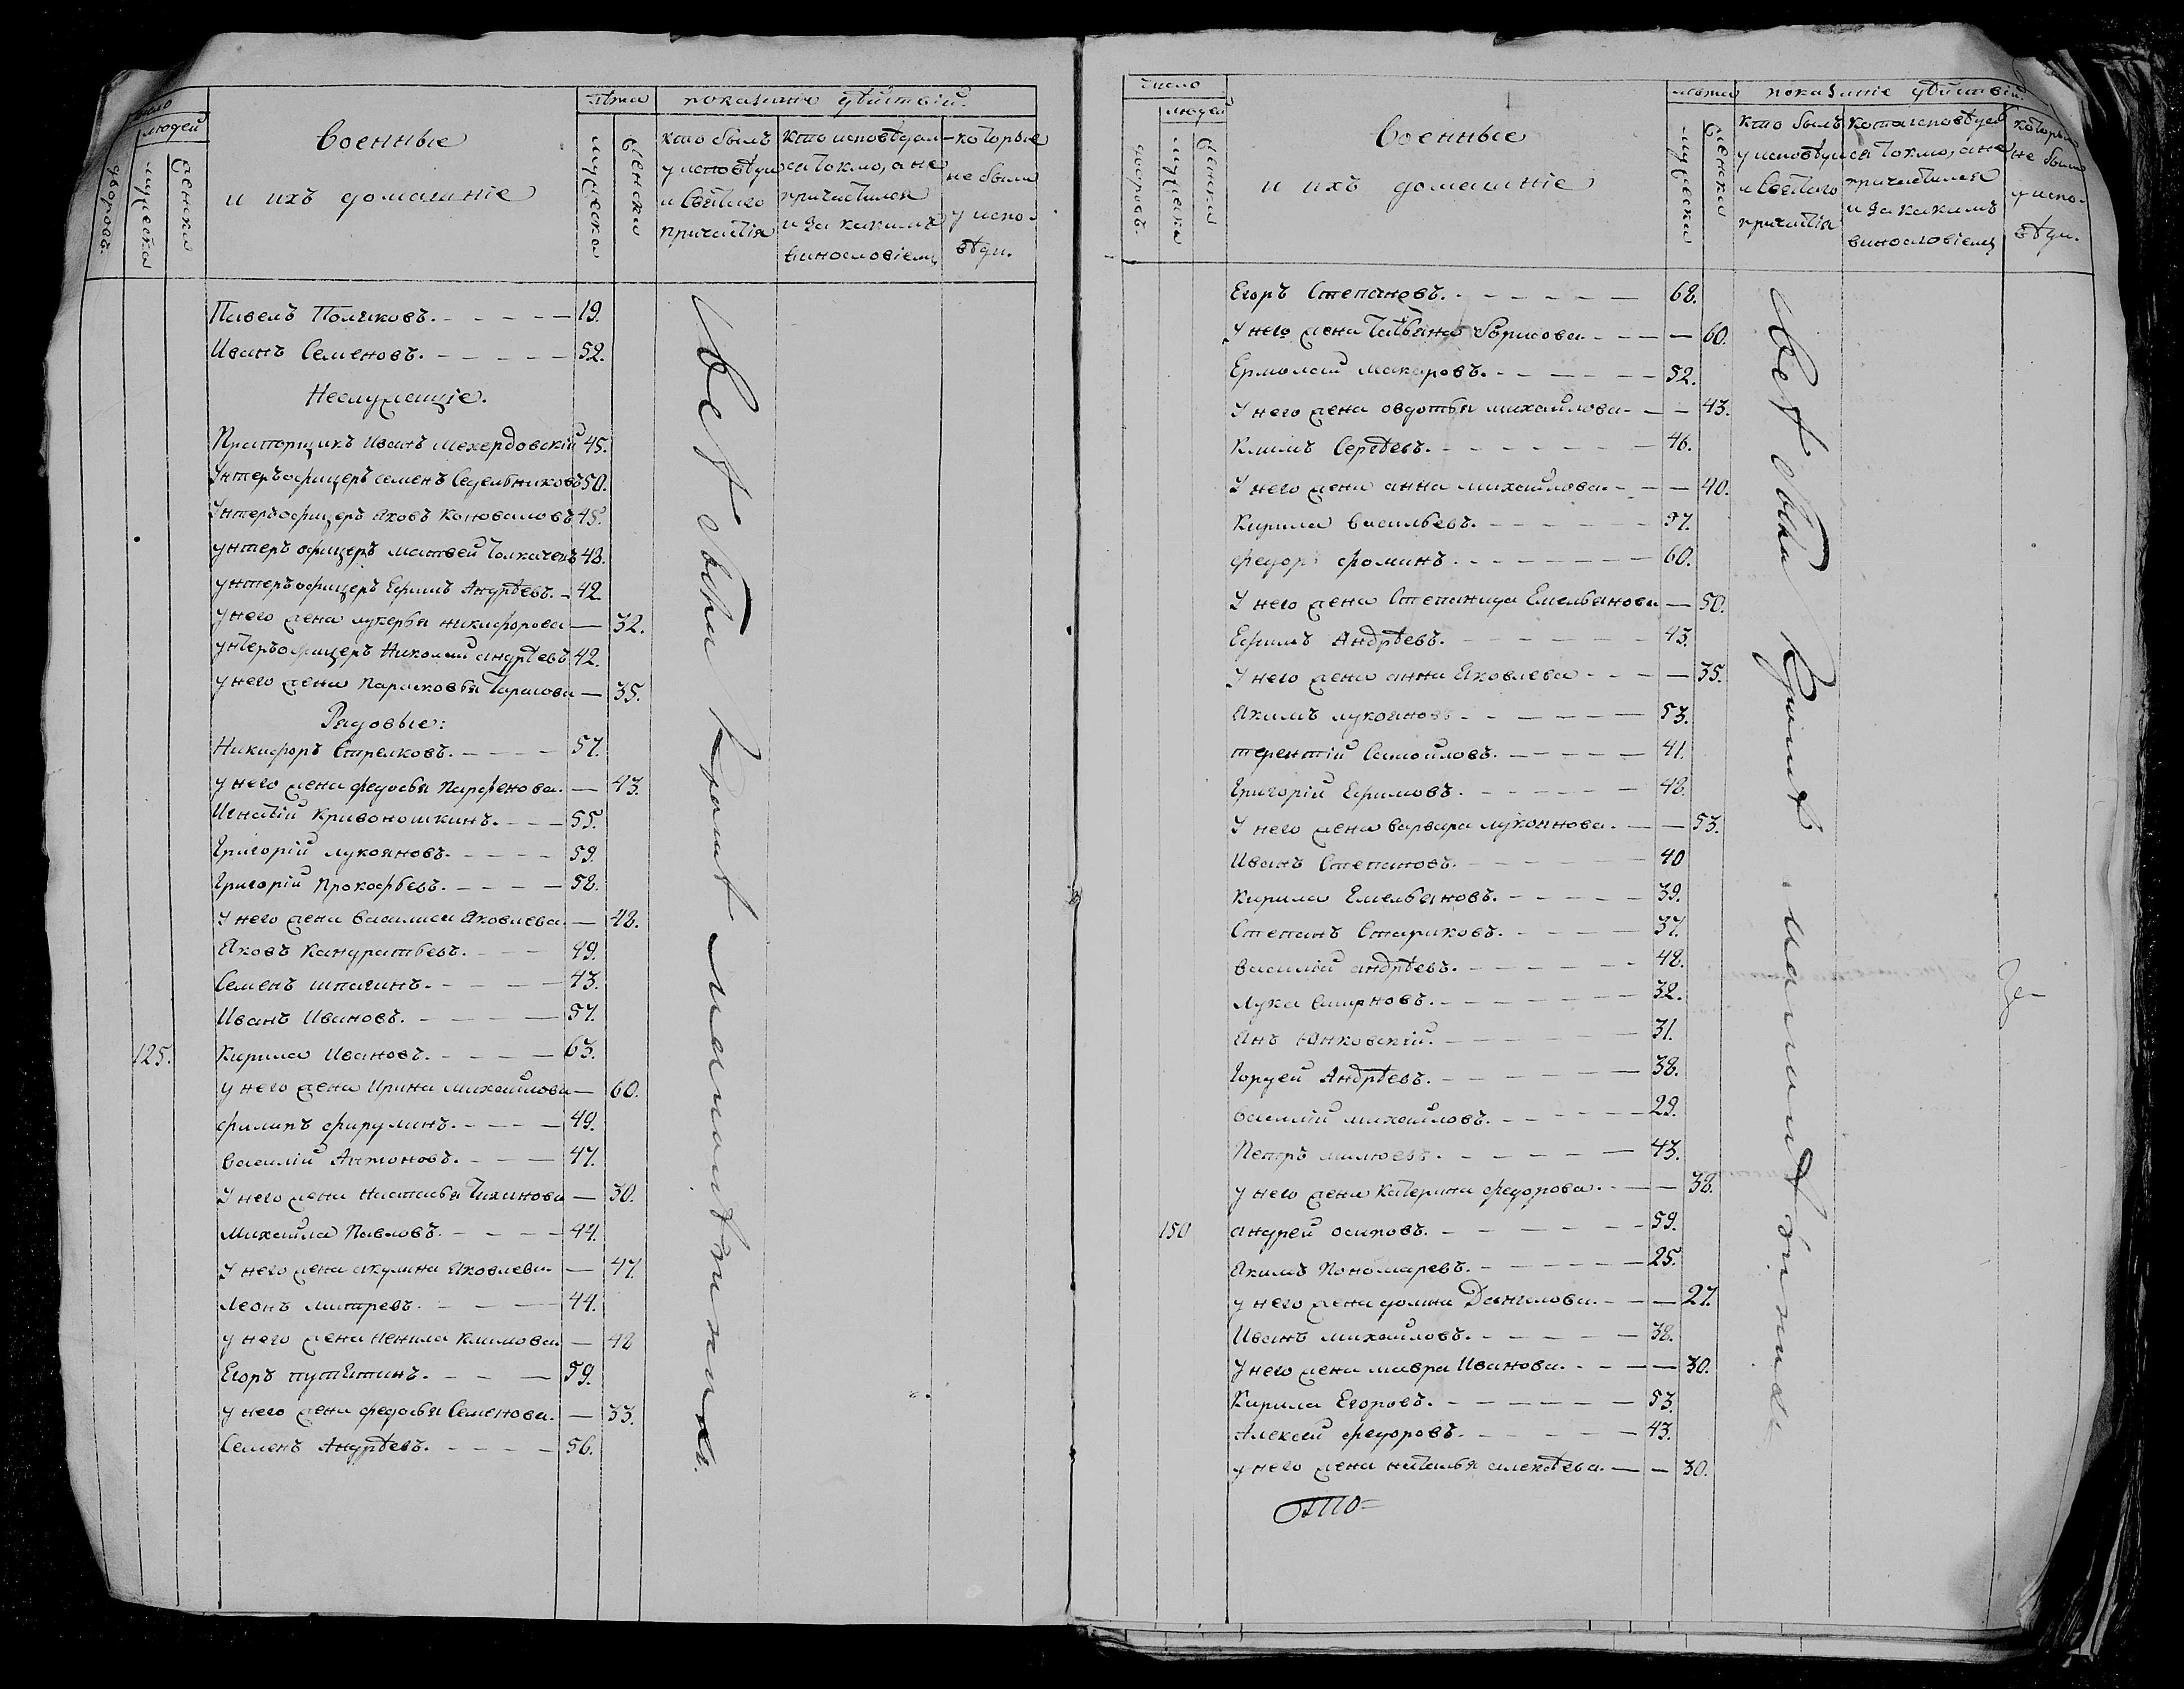 число
людей
дворовъ.
мужеска
женска
Военныѣ
и ихъ домашніе
лѣта
мужеска
женска
показаніе дѣйствій.
кто былъ у исповѣди и Святаго причастія
кто исповѣдался токмо, а не причастился и за какимъ винословіемъ
которые не были у исповѣди.
Павелъ Поляковъ. 19.
Иванъ Семеновъ. 52.
Неслужащіе.
Прапорщикъ Иванъ 45.
Унтеръофицеръ Семенъ Седельниковъ 50.
Унтеръофицеръ Яковъ Коноваловъ 45.
Унтеръофицеръ Матвей Толкачевъ 48.
Унтеръофицеръ Ефимъ Андрѣевъ. 42.
у него жена Лукерья Никифорова — 32.
Унтеръофицеръ Николай Андрѣевъ 42.
у него жена Парасковья Тарасова — 35.
Рядовые:
Никифоръ Стрелковъ. 57.
у него жена Федосья Парфенова. — 43.
Игнатій Кривоношкинъ. 55.
Григорій Лукояновъ. 59.
Григорій Прокофьевъ. 58.
У него жена Василиса Яковлева. — 48.
Яковъ Кандратьевъ. 49.
Семенъ Шпагинъ. 43.
Иванъ Ивановъ. 57.
125. Кирила Ивановъ. 63.
у него жена Ирина Михайлова — 60.
Филипъ Фирулинъ. 49.
Василій Антоновъ. 47.
У него жена Настасья Тихинова — 30.
Михайла Павловъ. 44.
У него жена Акулина Яковлева. — 47.
Леонъ Митревъ. 44.
У него жена Ненила Климова. — 48
Егоръ Путѣтинъ. 59.
у него жена Федосья Семенова. — 33.
Семенъ Андрѣевъ. 56.
Всѣ были Кромѣ малолѣтнихъ.
число
людей
дворовъ.
мужеска
женска
Военныѣ
и ихъ домашніе
лѣта
мужеска
женска
показаніе дѣйствій.
кто былъ у исповѣди и Святаго причастія
кто исповѣдался токмо, а не причастился и за какимъ винословіемъ
которые не были у исповѣди.
Егоръ Степановъ. 68.
У него жена Татьяна Борисова. — 60.
Ермолай Макаровъ. 52.
У него жена Овдотья Михайлова. — 43.
Климъ Сергѣевъ. 46.
У него жена Анна Михайлова. — 40.
Кирила Васильевъ. 57.
Федоръ Фоминъ. 60.
У него жена Степанида Емельянова — 50.
Ефимъ Андрѣевъ. 43.
У него жена Анна Яковлева — 35.
Якимъ Лукояновъ. 53.
Терентій Самойловъ. 41.
Григорій Ефимовъ. 48.
У него жена Варвара Лукоянова. — 53.
Иванъ Степановъ. 40
Кирила Емельяновъ. 39.
Степанъ Стариковъ. 37.
Василій Андрѣевъ. 48.
Лука Смирновъ. 32.
Янъ Янковскій. 31.
Гордей Андрѣевъ. 38.
Василій Михайловъ. 29.
Петръ 43.
у него жена Катерина Федорова. — 38.
150 Андрей Осиповъ. 59.
Якимъ Пономаревъ. 25.
у него жена Домна Данилова. — 27.
Иванъ Михайловъ. 38.
У него жена Мавра Иванова. — 30.
Кирила Егоровъ. 53.
Алексей Федоровъ. 43.
у него жена Наталья Алексѣева. — 30.
Всѣ были Кромѣ малолѣтнихъ